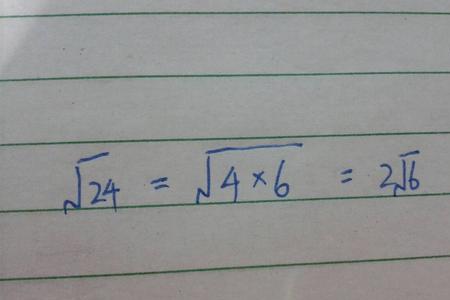 √24 = √4×6 = 2√6